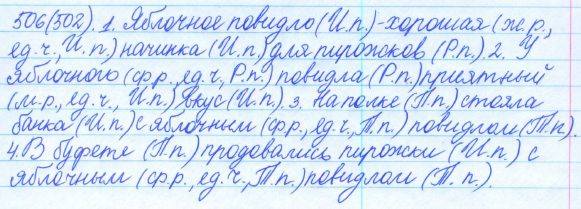 506(502). 1. Яблочное повидло (И.п.)-хорошая (ж.р.,
ед.ч., И.п.) начинка (И.п.) для пирожков (Р.п.). 2. У
яблочного (ср.р., ед.ч., Р.п.) повидла (Р.п.) приятный
(м.р., ед.ч., И.п.) вкус (И.п.). 3. На полке (П.п.) стояла
банка (И.п.) с яблочным (ср.р., ед.ч., Т.п.) повидлом (Т.п).
4. В буфете (П.п.) продовались пирожки (И.п.) с
яблочным (ср.р., ед.ч., Т.п.) повидлом (Т.п.).